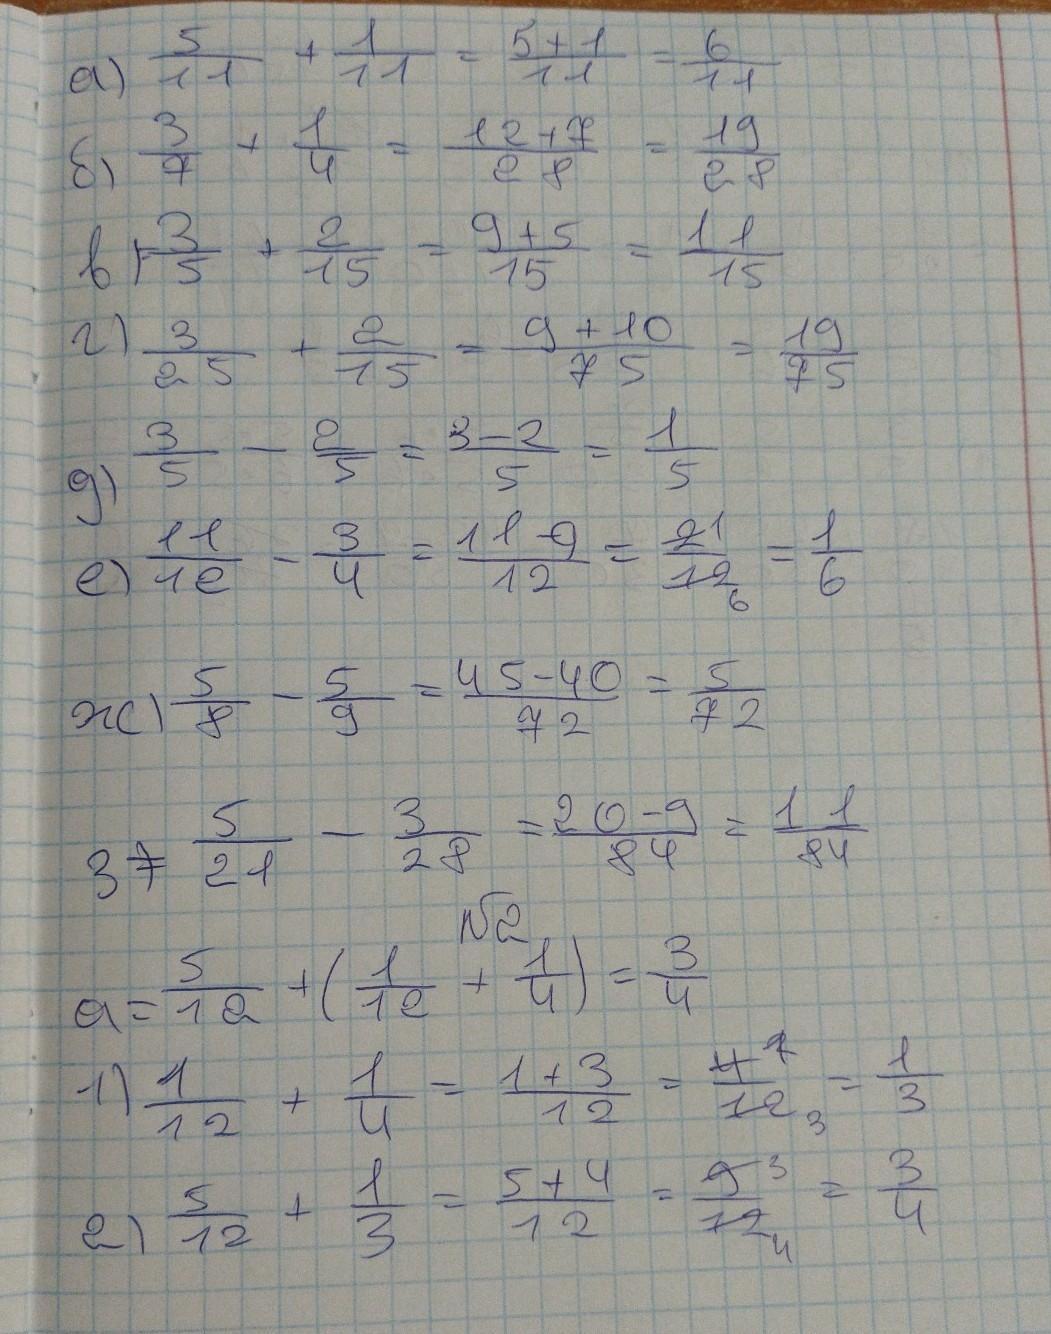 а) 5/11 + 1/11 = 5+1/11 = 6/11
б) 3/7 + 1/4 = 12+7/28 = 19/28
в) 3/5 + 2/15 = 9+5/15 = 11/15
г) 3/25 + 2/15 = 9+10/75 = 19/75
д) 3/5 - 2/5 = 3-2/5 = 1/5
е) 11/12 - 3/4 = 11-9/12 = 2 1/12 6 = 1/6
ж) 5/8 - 5/9 = 45-40/72 = 5/72
з) 5/21 - 3/28 = 20-9/84 = 11/84
№2
а = 5/12 + (1/12 + 1/4) = 3/4
1) 1/12 + 1/4 = 1+3/12 = 4 1/12 3 = 1/3
2) 5/12 + 1/3 = 5+4/12 = 9 3/12 4 = 3/4